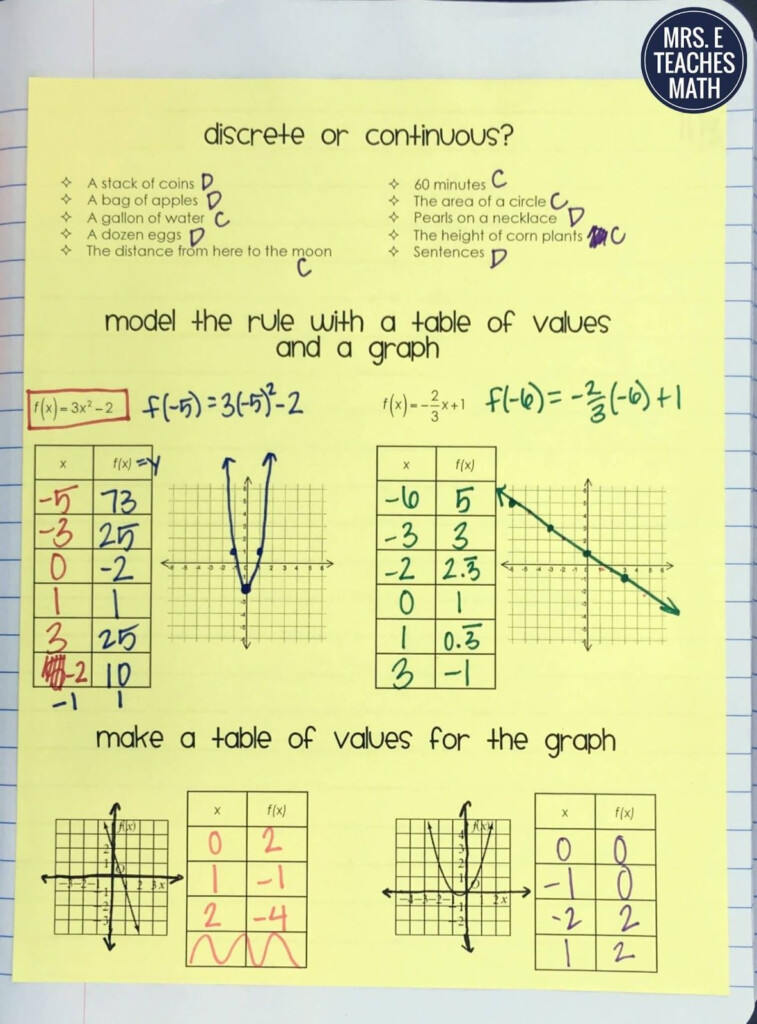 MRS. E
TEACHES
MATH
discrete or continuous?
✧ A stack of coins D
✧ A bag of apples D
✧ A gallon of water C
✧ A dozen eggs D
✧ The distance from here to the moon
C
✧ 60 minutes C
✧ The area of a circle C
✧ Pearls on a necklace D
✧ The height of corn plants C
✧ Sentences D
model the rule with a table of values
and a graph
f(x) = 3x² − 2 f(-5) = 3(-5)² - 2
x f(x) = y
-5 73
-3 25
0 -2
1 1
3 25
-2 10
-1 1
f(x) = −2/3 x + 1 f(-6) = -2/3 (-6) + 1
x f(x)
-6 5
-3 3
-2 2.3̅
0 1
1 0.3̅
3 -1
make a table of values for the graph
f(x)
x
x f(x)
0 2
1 -1
2 -4
f(x)
x
x f(x)
0 0
-1 0
-2 2
1 2